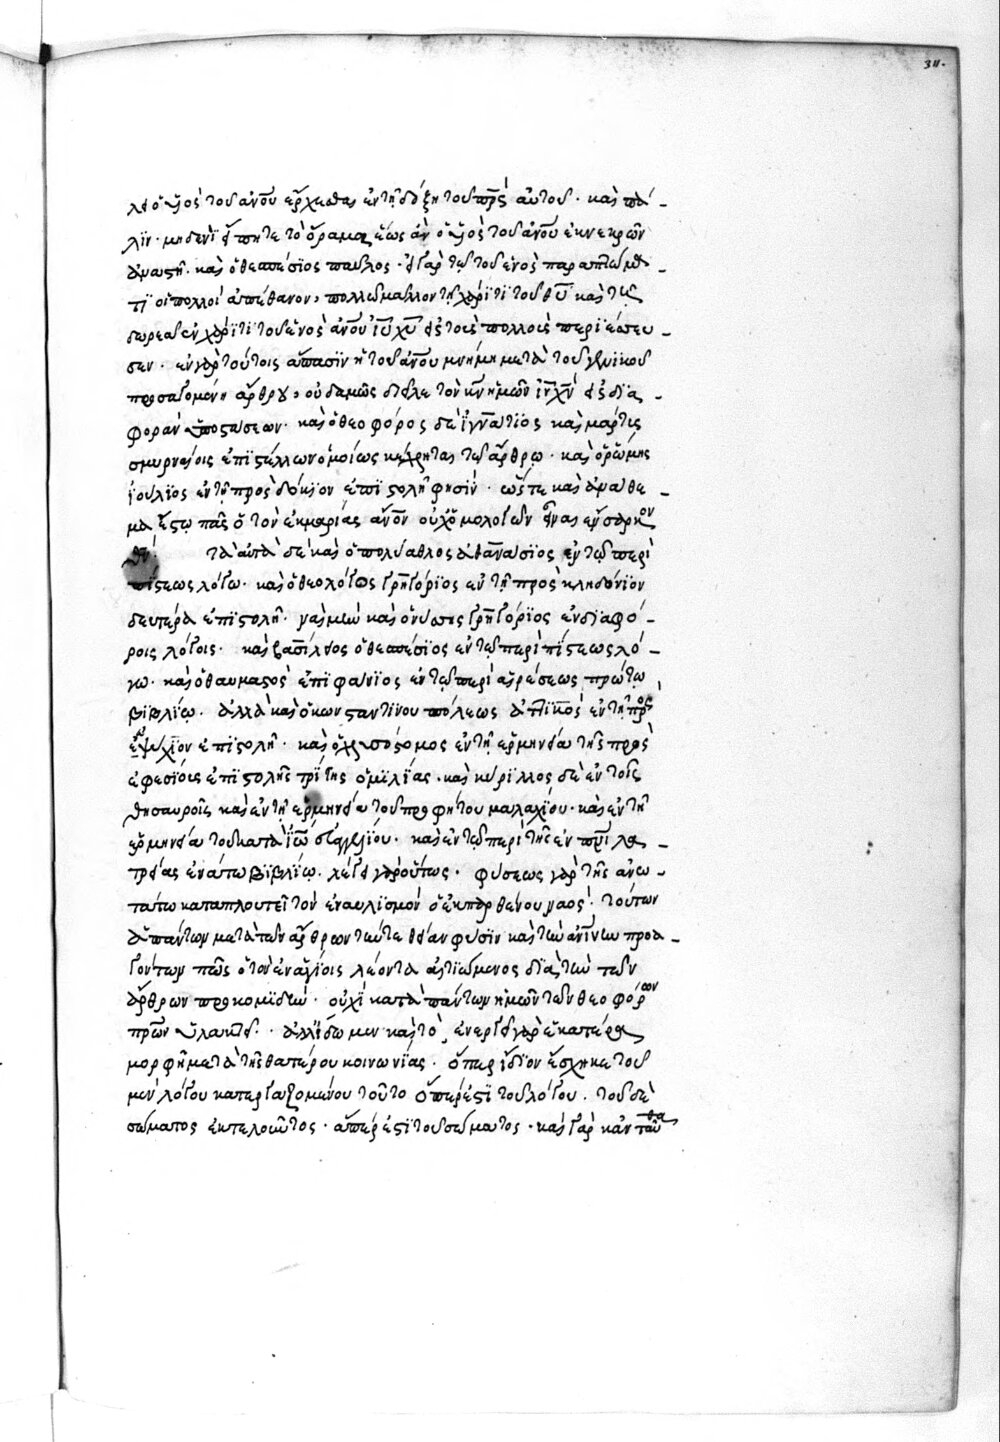 311.
λει ὁ υἱὸς τοῦ ἀνου ἔρχεσθαι ἐν τῇ δόξῃ τοῦ πρς αὐτοῦ· καὶ πά-
λϊν· μηδενὶ εἴπητε τὸ ὅραμα, ἕως ἂν ὁ υἱὸς τοῦ ἀνου ἐκ νεκρῶν
ἀναστῆ· καὶ ὁ θεσπέσϊος παῦλος· εἰ γὰρ τῶ τοῦ ἑνὸς παραπτώμα-
τϊ οἱ πολλοὶ ἀπέθανον, πολλῶ μᾶλλον τῆ χάρϊτϊ τοῦ θυ καὶ τῆς
δωρεᾶς ἐν χάρϊτϊ τοῦ ἑνὸς ἀνου ιυ χυ εἰς τοὺς πολλοὺς περϊέσσευ-
σεν· ἐν γὰρ τούτοις ἅπασϊν ἡ τοῦ ἀνου μνήμη μετὰ τοῦ γενϊκοῦ
προσαγομένη ἄρθρου, οὐδαμῶς διεῖλε τὸν κν ἡμῶν ιν χν εἰς δϊα-
φορὰν ὑποστάσεων· καὶ ὁ θεοφόρος δὲ ἰγνάτϊος καὶ μάρτυς
σμυρναίοις ἐπϊστέλλων ὁμοίως κέχρηται τῶ ἄρθρω· καὶ ὁ ῥώμης
ϊούλϊος ἐν τῆ πρὸς δόκϊον ἐπϊστολῆ φησϊν· ὥστε καὶ ἀνάθε-
μα ἔστω πᾶς ὁ τὸν ἐκ μαρίας ἄνον οὐχ ὁμολογῶν εἶναι ἔνσαρκον
θν· τὰ αὐτὰ δὲ καὶ ὁ πολύαθλος ἀθανάσϊος ἐν τῶ περὶ
πίστεως λόγω· καὶ ὁ θεολόγος γρηγόρϊος ἐν τῆ πρὸς κληδόνϊον
δευτέρα ἐπϊστολῆ· ναὶ μὴν καὶ ὁ νύσσης γρηγόρϊος ἐν δϊαφό-
ροις λόγοις· καὶ βασίλειος ὁ θεσπέσϊος ἐν τῶ περὶ πίστεως λό-
γω· καὶ ὁ θαυμαστὸς ἐπϊφάνϊος ἐν τῶ περὶ αἱρέσεως πρώτω
βϊβλίω· ἀλλὰ καὶ ὁ κωνσταντίνου πόλεως ἀττικὸς ἐν τῆ πρὸς
εὐψύχϊον ἐπϊστολῆ· καὶ ὁ χρυσόστομος ἐν τῆ ἑρμηνεία τῆς πρὸς
ἐφεσίοις ἐπϊστολῆς τρίτης ὁμιλίας· καὶ κύρϊλλος δὲ ἐν τοῖς
θησαυροῖς καὶ ἐν τῆ ἑρμηνεία τοῦ προφήτου μαλαχίου· καὶ ἐν τῆ
ἑρμηνεία τοῦ κατὰ ϊω εὐαγγελίου· καὶ ἐν τῶ περὶ τῆς ἐν πνι λα-
τρείας ἐνάτω βϊβλίω· λέγει γὰρ οὕτως· φύσεως γὰρ τῆς ἀνω-
τάτω καταπλουτεῖ τὸν ἐναυλϊσμὸν ὁ ἐκ παρθένου ναός· τούτων
ἁπάντων μετὰ τῶν ἄρθρων τήν τε θείαν φύσϊν καὶ τὴν ἀνίνην προσα-
γόντων πῶς ὁ τὸν ἐν ἁγίοις λέοντα αἰτϊώμενος δϊὰ τὴν τῶν
ἄρθρων προκομϊδήν· οὐχὶ κατὰ πάντων ἡμῶν τῶν θεοφόρων
πρων ὑλακτεῖ· ἀλλ' ἴδωμεν καὶ τὸ, ἐνεργεῖ γὰρ ἑκατέρα
μορφὴ μετὰ τῆς θατέρου κοινωνίας· ὅπερ ἴδϊον ἔσχηκε τοῦ
μὲν λόγου κατεργαζομένου τοῦτο ὅπερ ἐστϊ τοῦ λόγου· τοῦ δὲ
σώματος ἐκτελοῦντος· ἅπερ ἐστϊ τοῦ σώματος· καὶ γὰρ κἀνταῦθα